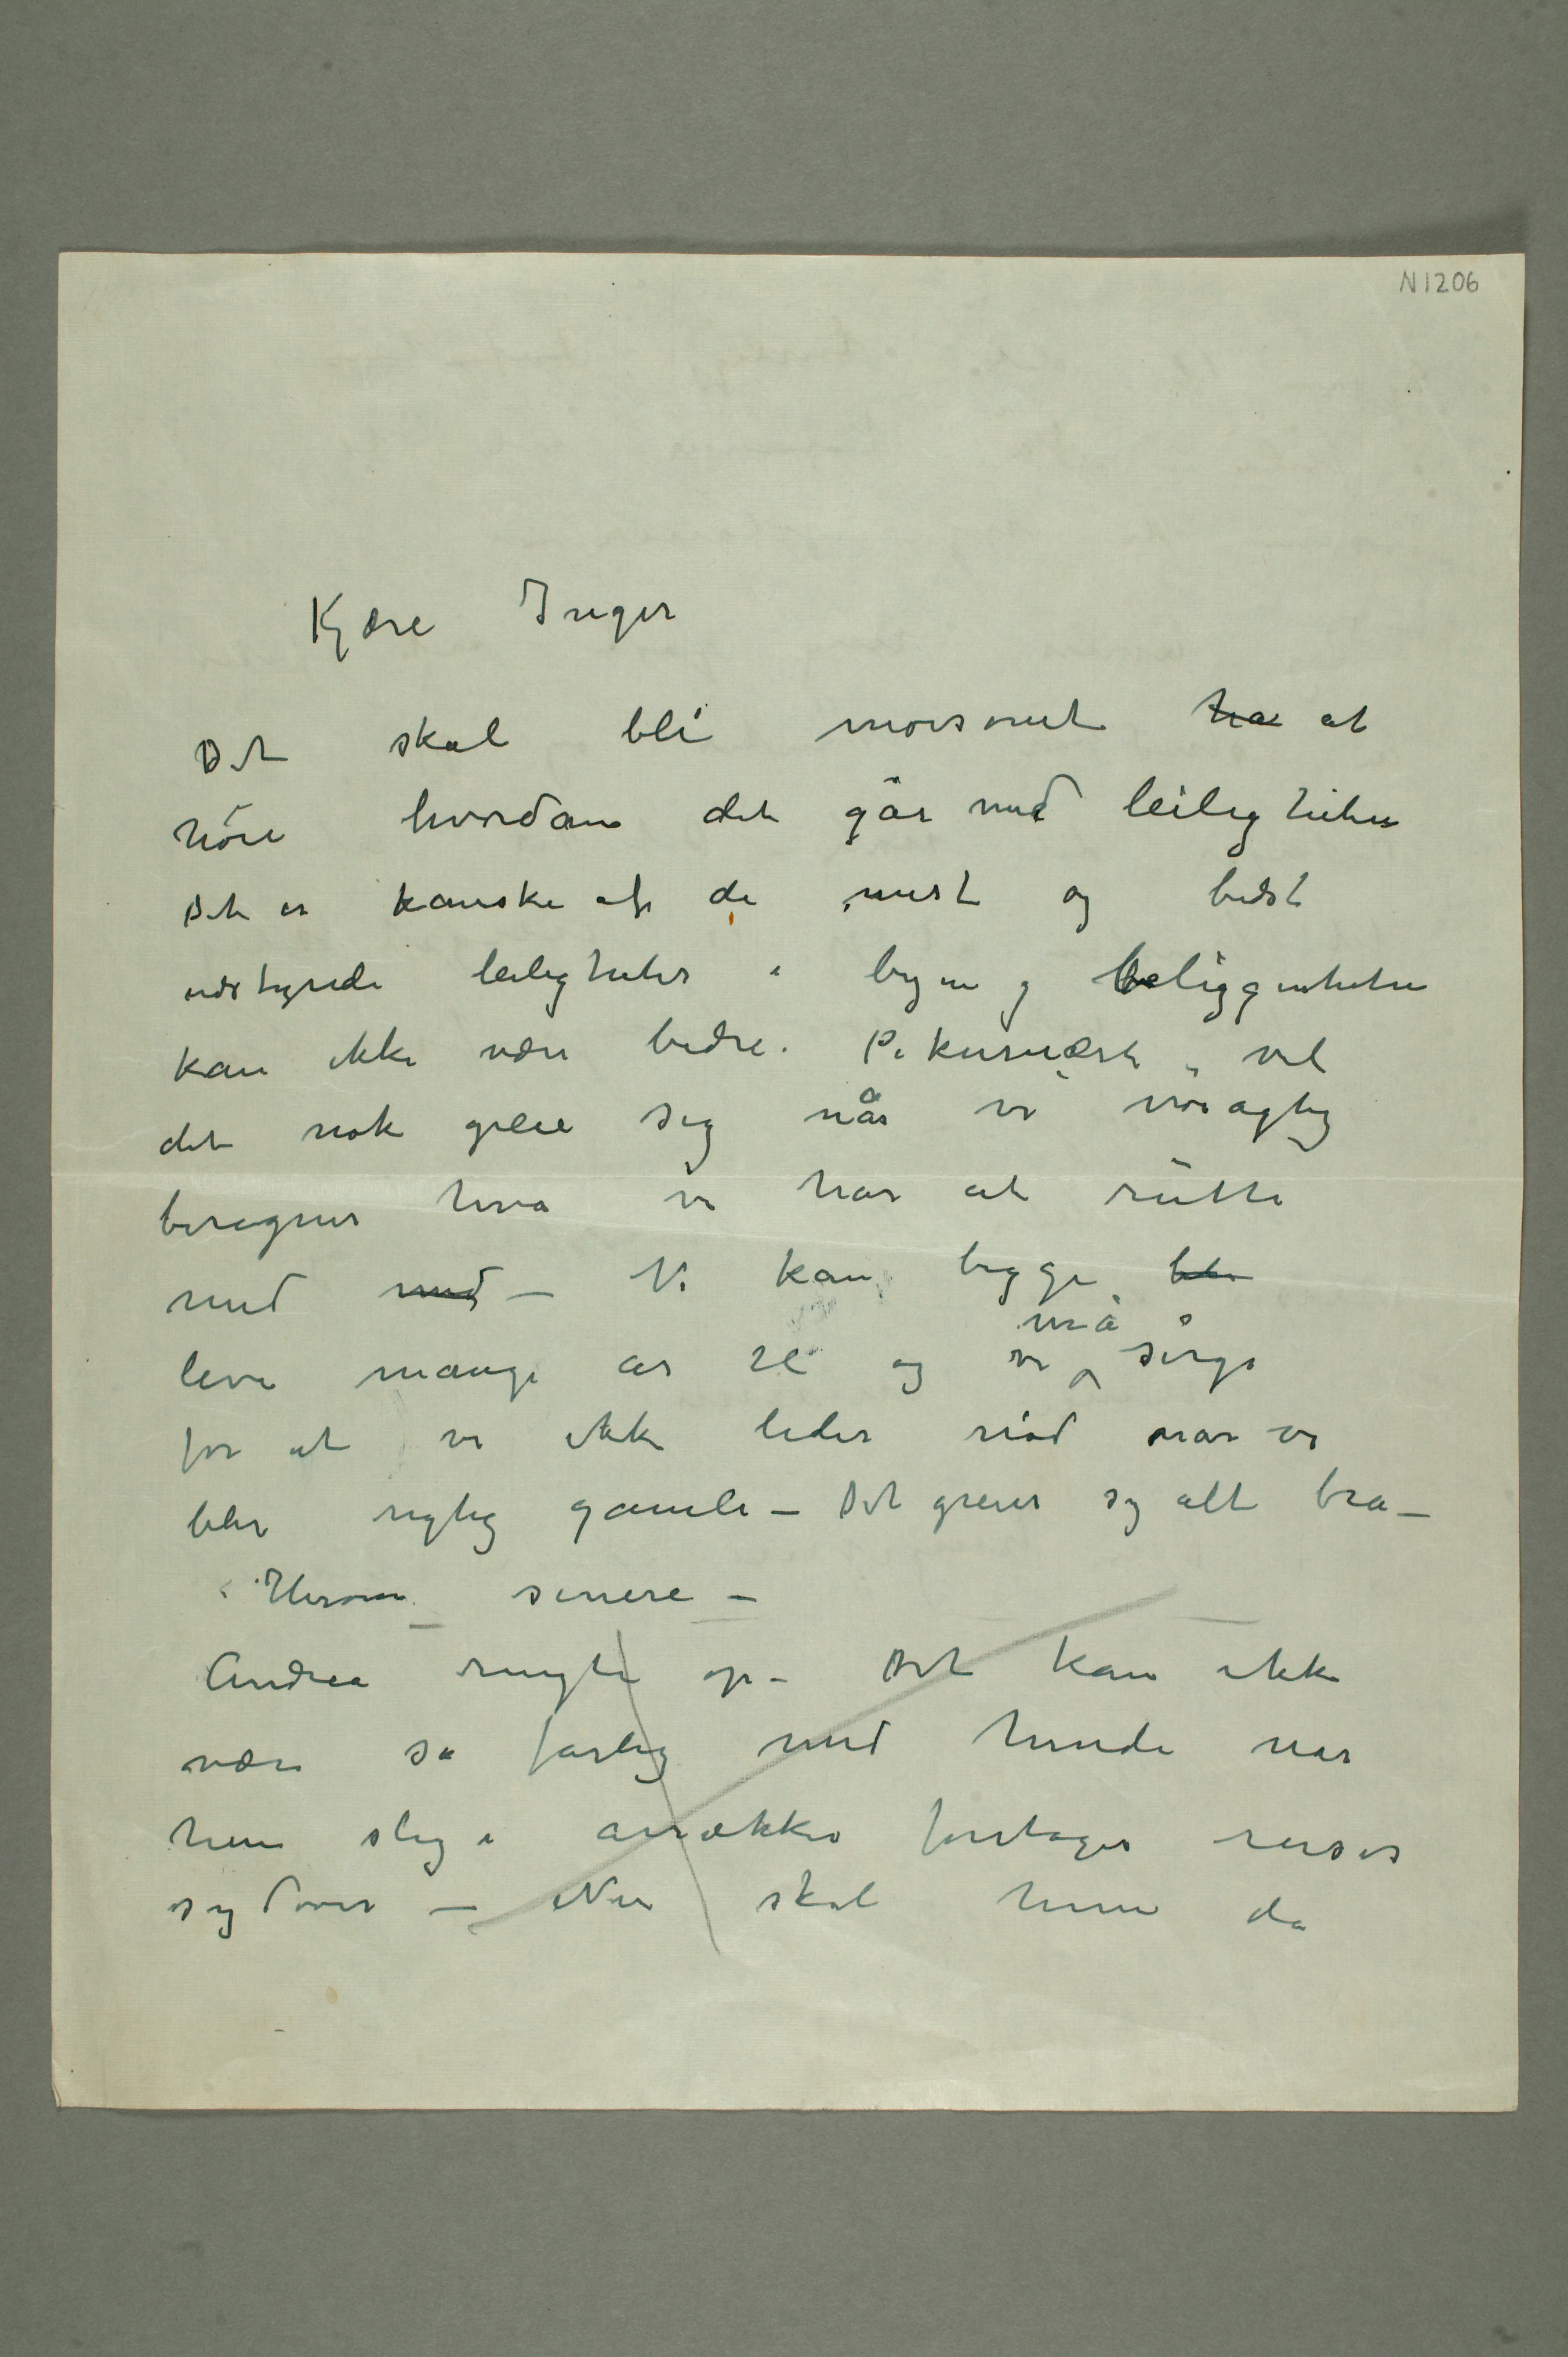 N 1206
Kjære Inger
Det skal bli morsomt ha at
höre hvordan det går med leiligheten
Det er kanske af de mest og bedst
udstyrede leiligheter i byen og beliggenheten
kan ikke være bedre. Pekuniært vil
det nok greie sig når vi nöiagtig
beregner hva vi har at rutte
med med – Vi kan begge bli
leve mange år til og vi må sørge
for at vi ikke lider nöd når vi
blir rigtig gamle – Det greier sig alt bra –
Herom senere –
Andrea ringte op – Det kan ikke
være så farlig med hende når
hun slig i årrækker foretager reiser
sydover – Nu skal hun da